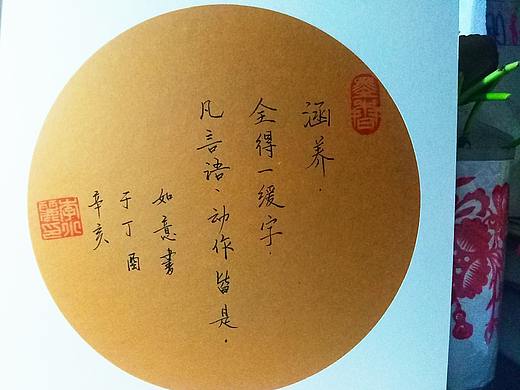 涵养．
全得一缓字．
凡言语、动作皆是．
如意書
于丁酉
辛亥